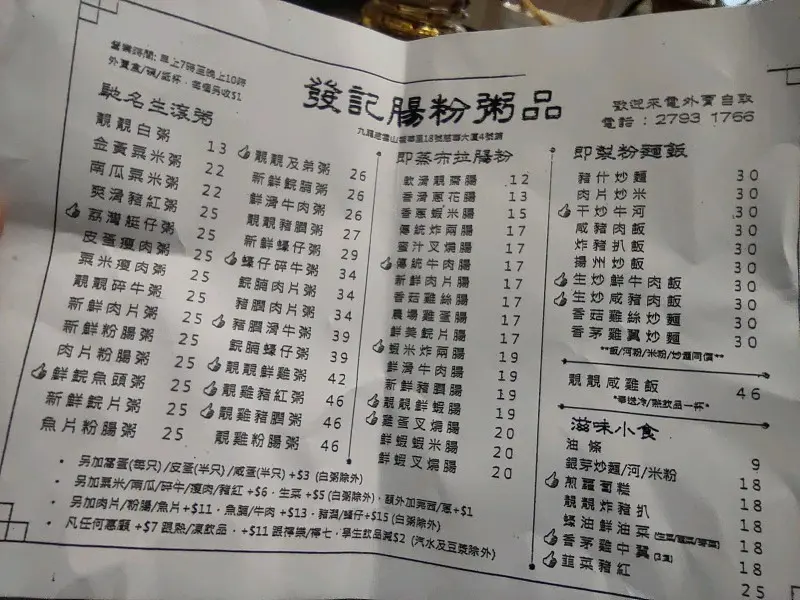 營業時間: 早上7時至晚上10時
外賣盒/碗/紙杯, 每個另收$1
發記腸粉粥品
九龍慈雲山毓華里18號慈華大廈4號舖
歡迎來電外賣自取
電話: 2793 1766
馳名生滾粥
靚靚白粥 13
金黃粟米粥 22
南瓜粟米粥 22
爽滑豬紅粥 25
荔灣艇仔粥 25
皮蛋瘦肉粥 25
粟米瘦肉粥 25
靚靚碎牛粥 25
新鮮肉片粥 25
新鮮粉腸粥 25
肉片粉腸粥 25
鮮鯇魚頭粥 25
新鮮鯇片粥 25
魚片粉腸粥 25
靚靚及弟粥 26
新鮮鯇腩粥 26
鮮滑牛肉粥 26
靚靚豬膶粥 27
新鮮蠔仔粥 29
蠔仔碎牛粥 34
鯇腩肉片粥 34
豬膶肉片粥 34
豬膶滑牛粥 39
鯇腩蠔仔粥 39
靚靚鮮雞粥 42
靚雞豬紅粥 46
靚雞豬膶粥 46
靚雞粉腸粥 46
即蒸布拉腸粉
軟滑靚齋腸 12
香滑蔥花腸 13
香蔥蝦米腸 15
傳統炸兩腸 17
蜜汁叉燒腸 17
傳統牛肉腸 17
新鮮肉片腸 17
香菇雞絲腸 17
農場雞蛋腸 17
鮮美鯇片腸 17
蝦米炸兩腸 19
鮮滑牛肉腸 19
新鮮豬膶腸 19
靚靚鮮蝦腸 19
雞蛋叉燒腸 20
鮮蝦蝦米腸 20
鮮蝦叉燒腸 20
即製粉麵飯
豬什炒麵 30
肉片炒米 30
干炒牛河 30
咸豬肉飯 30
炸豬扒飯 30
揚州炒飯 30
生炒鮮牛肉飯 30
生炒咸豬肉飯 30
香菇雞絲炒麵 30
香茅雞翼炒麵 30
**飯/河粉/米粉/炒麵同價**
靚靚咸雞飯 46
*奉送冷/熱飲品一杯*
滋味小食
油條 9
銀芽炒麵/河/米粉 18
煎蘿蔔糕 18
靚靚炸豬扒 18
蠔油鮮油菜 18
香茅雞中翼 18
韮菜豬紅 25
• 另加窩蛋(每只)/皮蛋(半只)/咸蛋(半只)+$3 (白粥除外)
• 另加粟米/南瓜/碎牛/瘦肉/豬紅+$6, 生菜+$5(白粥除外), 額外加芫茜/蔥+$1
• 另加肉片/粉腸/魚片+$11, 魚腩/牛肉+$13, 豬膶/蠔仔+$15(白粥除外)
• 凡任何惠顧 +$7 跟熱/凍飲品, +$11 跟檸樂/檸七, 學生飲品減$2 (汽水及豆漿除外)